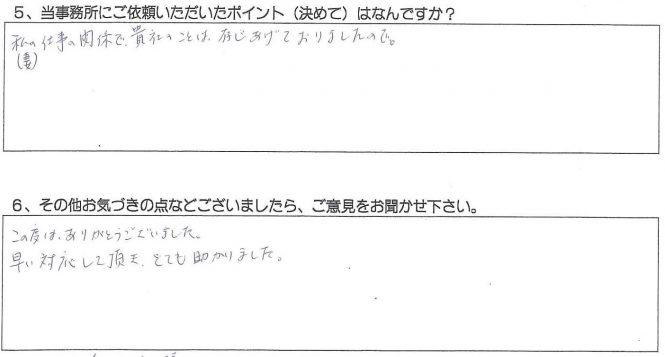 5、当事務所にご依頼いただいたポイント（決めて）はなんですか？
私の仕事の関係で、貴社のことは、存じあげておりましたので。
(妻)
6、その他お気づきの点などございましたら、ご意見をお聞かせ下さい。
この度は、ありがとうございました。
早い対応して頂き、とても助かりました。